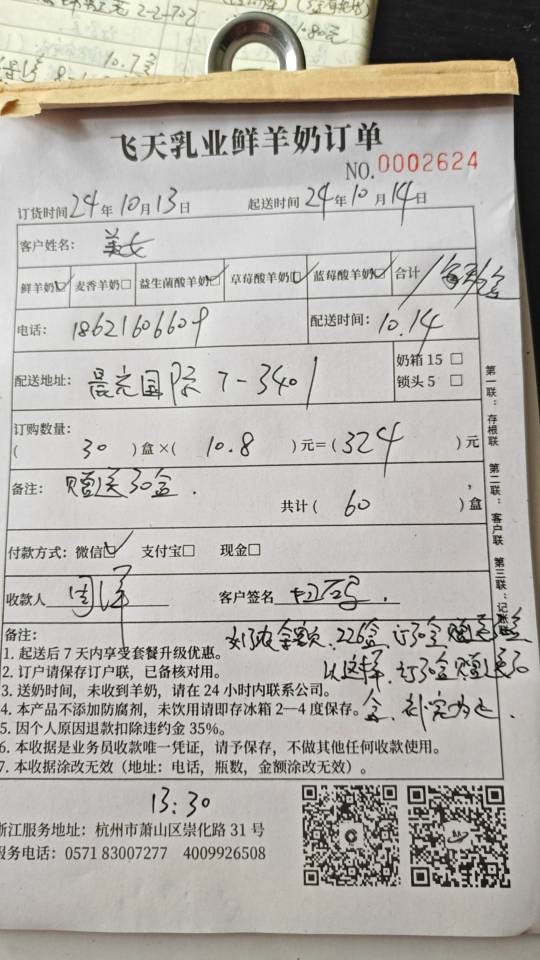 飞天乳业鲜羊奶订单
NO.0002624
订货时间24年10月13日 起送时间24年10月14日
客户姓名：美女
鲜羊奶☑ 麦香羊奶□ 益生菌酸羊奶☑ 草莓酸羊奶☑ 蓝莓酸羊奶☑ 合计
电话：18621606609 配送时间：10.14
配送地址：晨光国际 7-3401
奶箱 15 □
锁头 5 □
订购数量：
（30）盒×（10.8）元=（324）元
备注：赠送30盒．
共计（60）盒
付款方式：微信☑ 支付宝□ 现金□
收款人 周洋 客户签名 扫码．
备注：
1. 起送后 7 天内享受套餐升级优惠。
2. 订户请保存订户联，已备核对用。
3. 送奶时间，未收到羊奶，请在 24 小时内联系公司。
4. 本产品不添加防腐剂，未饮用请即存冰箱 2—4 度保存。
5. 因个人原因退款扣除违约金 35%。
6. 本收据是业务员收款唯一凭证，请予保存，不做其他任何收款使用。
7. 本收据涂改无效（地址：电话，瓶数，金额涂改无效）。
226盒，订30盒赠送
订30盒赠送30
盒，
13:30
浙江服务地址：杭州市萧山区崇化路 31 号
服务电话：0571 83007277 4009926508
第一联：存根联 第二联：客户联 第三联：记账联